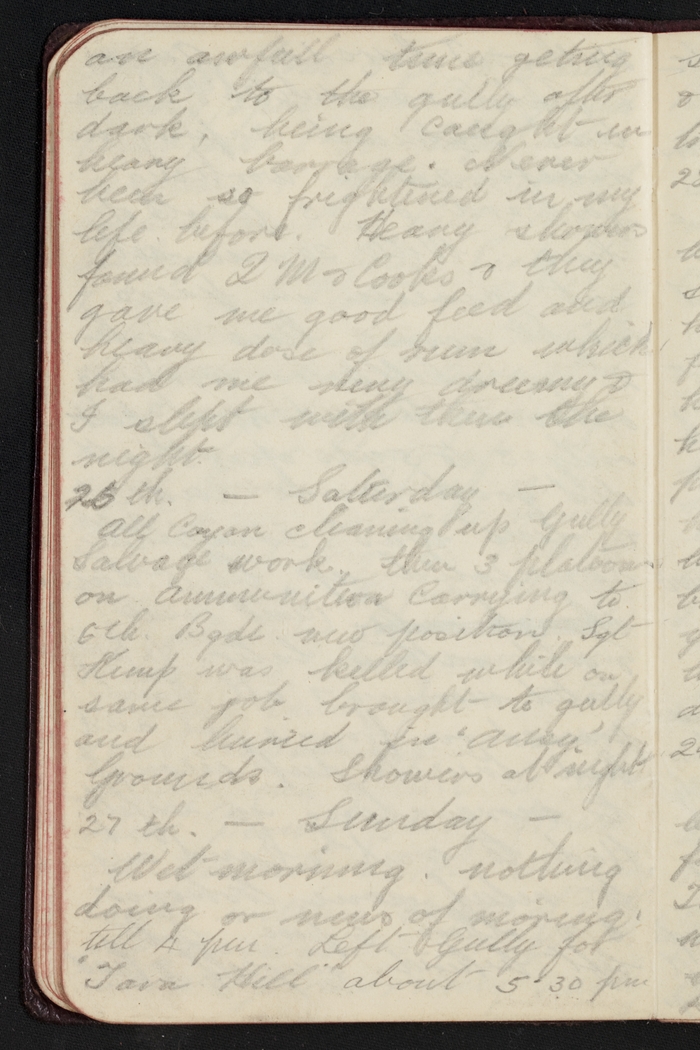 an awfull time geting
back to the gully after
dark, being caught in
heavy barrage. Never
been so frightined in my
life before. Heavy showers
found Q M & Cooks & they
gave me good feed and
heavy dose of rum which
had me very dreamy &
I slept with them the
night.
26th. — Saturday —
all Coyon cleaning up Gully
Salvage work. then 3 platoons
on ammunition Carrying to
6th. Bgde new position. Sgt
Kemp was killed while on
same job brought to gully
and buried in
Grounds. Showers at night
27th. — Sunday —
Wet morining. nothing
doing or news of moving.
till 4 pm. Left Gully for
"Tara Hill" about 5.30 pm